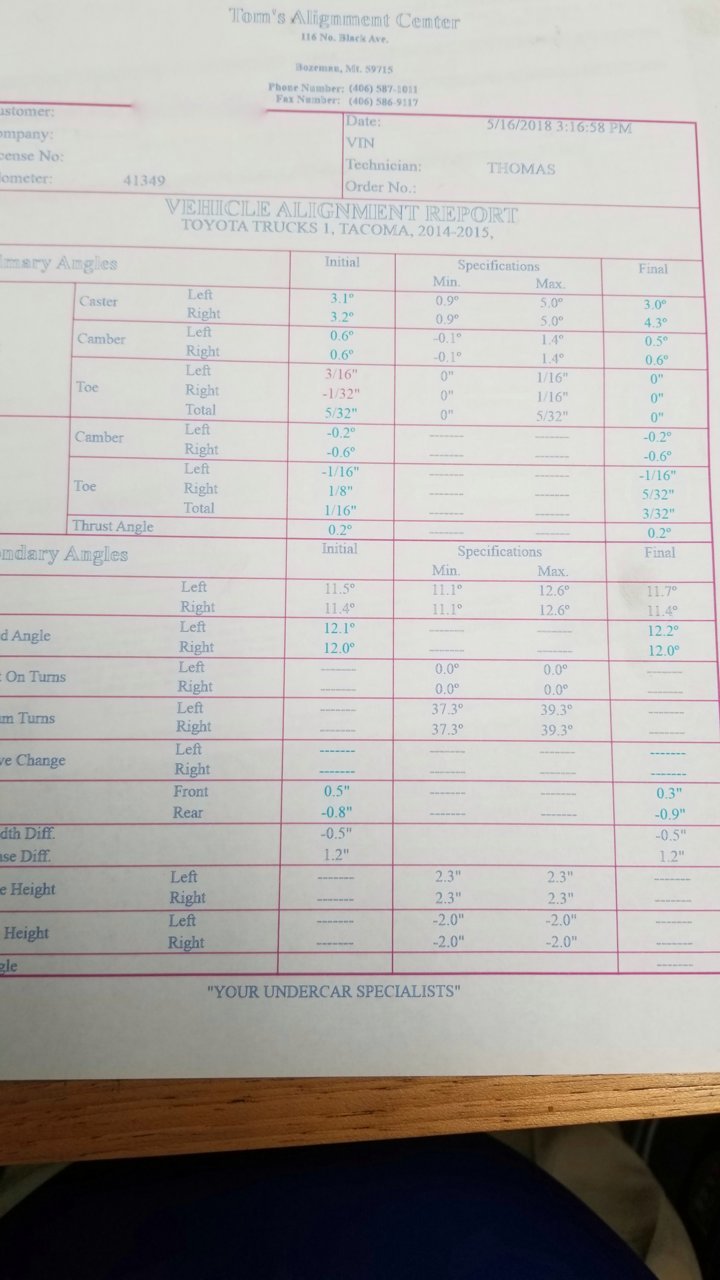 Tom's Alignment Center
116 No. Black Ave.
Bozeman, Mt. 59715
Phone Number: (406) 587-1011
Fax Number: (406) 586-9117
ustomer:
ompany:
cense No:
ometer: 41349
Date: 5/16/2018 3:16:58 PM
VIN
Technician: THOMAS
Order No.:
VEHICLE ALIGNMENT REPORT
TOYOTA TRUCKS 1, TACOMA, 2014-2015,
mary Angles Initial Specifications Final
Min. Max.
Caster Left 3.1° 0.9° 5.0° 3.0°
Right 3.2° 0.9° 5.0° 4.3°
Camber Left 0.6° -0.1° 1.4° 0.5°
Right 0.6° -0.1° 1.4° 0.6°
Toe Left 3/16" 0" 1/16" 0"
Right -1/32" 0" 1/16" 0"
Total 5/32" 0" 5/32" 0"
Camber Left -0.2° ------- ------- -0.2°
Right -0.6° ------- ------- -0.6°
Toe Left -1/16" ------- ------- -1/16"
Right 1/8" ------- ------- 5/32"
Total 1/16" ------- ------- 3/32"
Thrust Angle 0.2° ------- ------- 0.2°
ndary Angles Initial Specifications Final
Min. Max.
Left 11.5° 11.1° 12.6° 11.7°
Right 11.4° 11.1° 12.6° 11.4°
d Angle Left 12.1° ------- ------- 12.2°
Right 12.0° ------- ------- 12.0°
On Turns Left ------- 0.0° 0.0° -------
Right ------- 0.0° 0.0° -------
m Turns Left ------- 37.3° 39.3° -------
Right ------- 37.3° 39.3° -------
ve Change Left ------- ------- ------- -------
Right ------- ------- ------- -------
Front 0.5" ------- ------- 0.3"
Rear -0.8" ------- ------- -0.9"
dth Diff. -0.5" -0.5"
ase Diff. 1.2" 1.2"
e Height Left ------- 2.3" 2.3" -------
Right ------- 2.3" 2.3" -------
Height Left ------- -2.0" -2.0" -------
Right ------- -2.0" -2.0" -------
gle -------
"YOUR UNDERCAR SPECIALISTS"